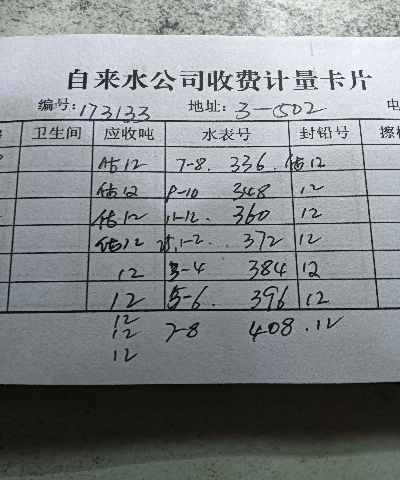 自来水公司收费计量卡片
编号: 173133 地址: 3-502 电
卫生间 应收吨 水表号 封铅号 擦
估12 7-8. 336. 估12
估12 9-10 348 12
估12 11-12. 360 12
估12 25.1-2. 372 12
12 3-4 384 12
12 5-6. 396 12
12
12 7-8 408. 12
12